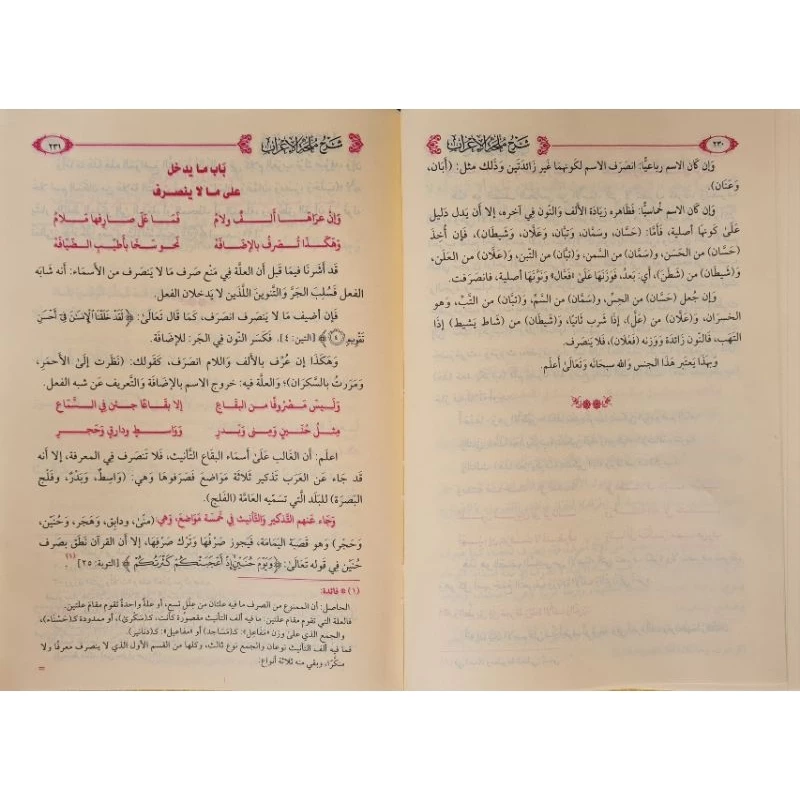 شرح ملحة الإعراب
٢٣٠
وَإن كَان الاسم رباعيًّا: انصَرَف الاسم لكَونهمَا غَير زَائدَتَين وَذَلك مثل: (أبَان،
وَعَنَان).
وَإن كَان الاسم خُماسيًّا: فَظَاهره زيَادَة الألف وَالنون في آخره، إلا أَن يَدل دَليل
عَلَىٰ كَونهَا أصلية، فَأمَّا: (حَسَّان، وسَمَّان، وَتبَّان، وَعَلَّان، وَشَيطَان)، فَإن أُخذَ
(حَسَّان) من الحَسَن، و(سَمَّان) من السَّمن، و(تبَّان) من التّبن، و(عَلَّان) من العَلَن،
وَ(شَيطَان) من (شَطَنَ)، أي: بَعدُ، فَوَزنهَا عَلَىٰ «فعَال» وَنُونُهَا أصلية، فَانصَرَفت.
وَإن جُعل (حَسَّان) من الحسّ، و(سَمَّان) من السَّمّ، و(تبَّان) من التَّبّ، وَهو
الخسرَان، وَ(عَلَّان) من (عَلَّ)، إذَا شَرب ثانيًا، وَ(شَيطَان) من (شَاط يَشيط) إذَا
التَهَب، فَالنُّون زَائدَة وَوَزنه (فَعلَان)، فَلَا يَنصَرف.
وَبهذَا يَعتَبر هَذَا الجنس وَالله سبحَانَه وَتَعَالَىٰ أعلَم.
شرح ملحة الإعراب
٢٣١
بَاب مَا يدخل
على مَا لا ينصرف
وَإنْ عَرَاهَا أَلفٌ ولامُ
فَمَا عَلَى صَارِفِهَا مَلَامُ
وَهَكَذَا تُصْرَفُ بالإضَافَهْ
نَحوُ سَخَا بأَطيَبِ الضِّيَافَهْ
قَد أَشَرنَا فيمَا قَبل أَن العلَّة في مَنْع صَرف مَا لا يَنصَرف من الأسمَاء: أنه شَابَه
الفعل فَسُلبَ الجَرَّ وَالتَّنوينَ اللَّذَين لا يَدخلَان الفعل.
فَإن أضيف مَا لا يَنصَرف انصَرف، كَمَا قَال تَعَالَىٰ: ﴿لَقَدْ خَلَقْنَا ٱلْإِنسَٰنَ فِىٓ أَحْسَنِ
تَقْوِيمٍ ٤﴾ [التين: ٤]. فَكَسَر النُّون في الجَر: للإضَافَة.
وَهَكَذَا إن عُرّف بالألف وَاللام انصَرَف، كَقَولك: (نَظَرت إلَىٰ الأحمَر،
وَمَرَرتُ بالسَّكرَان)؛ وَالعلَّة فيه: خروج الاسم بالإضَافَة وَالتَّعريف عَن شبه الفعل.
وَلَيْسَ مَصْرُوفًا مِنَ البِقَاعِ
إلا بِقَاعًا جئنَ فِي السَّمَاعِ
مِثلُ حُنَينٍ وَمِنى وَبَدْرِ
وَوَاسِطٍ ودابِقٍ وَحَجرِ
اعلَم: أن الغَالب عَلَىٰ أسمَاء البقَاع التَّأنيث، فَلَا تَنصَرف في المَعرفَة، إلا أَنه
قَد جَاء عَن العَرَب تَذكير ثَلَاثَة مَوَاضع فَصَرَفوهَا وَهي: (وَاسِطٌ، وَبَدْرٌ، وَفَلج
البَصرَة) للبَلَد الَّتي تَسميه العَامَّة (الفَلج).
وَجَاء عَنهم التَّذكير وَالتَّأنيث في خَمسَة مَوَاضع، وَهي: (منَىٰ، ودابق، وَهَجَر، وَحُنَين،
وَحَجر) وَهو قَصَبَة اليَمَامَة، فَيَجوز صَرفهَا وَتَرك صَرفهَا، إلا أن القرآن نَطَق بصَرف
حُنَين في قَوله تَعَالَىٰ: ﴿وَيَوْمَ حُنَيْنٍ إِذْ أَعْجَبَتْكُمْ كَثْرَتُكُمْ﴾ [التوبة: ٢٥] (١).
(١) * فائدة:
الحاصل: أن الممنوع من الصرف ما فيه علتان من علل تسع، أو علة واحدة تقوم مقام علتين.
فالعلة التي تقوم مقام علتين: ما فيه ألف التأنيث مقصورة كانت، كـ(سَكْرَىٰ)، أو ممدودة كـ(حَسْنَاء)،
والجمع الذي علىٰ وزن «مفَاعِل»: كـ(مَسَاجِد) أو «مفاعيل»: كـ(دنَانير).
فما فيه ألف التأنيث نوعان والجمع نوع ثالث، وكلها من القسم الأول الذي لا ينصرف معرفًا ولا
منكرًا، وبقي منه ثلاثة أنواع:
=